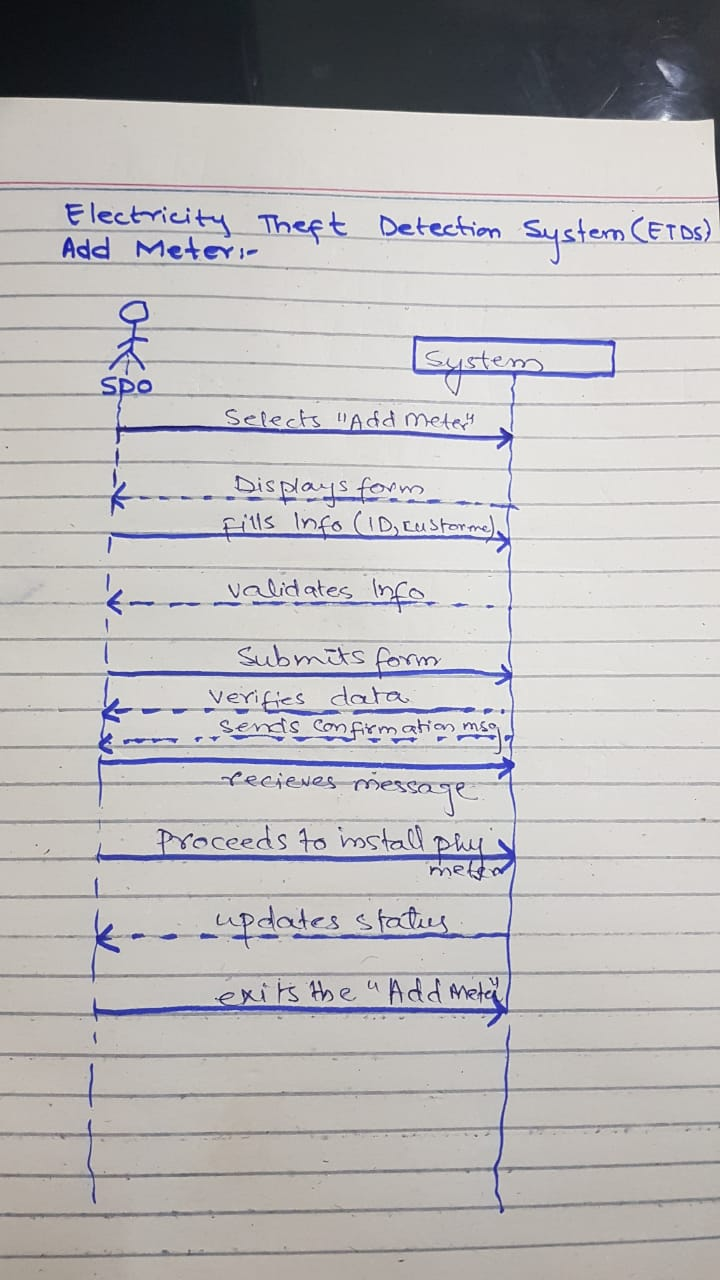 Electricity Theft Detection System (ETDS)
Add Meter:-
SPO
System
Selects "Add Meter"
Displays form
Fills Info (ID, customer)
Validates Info
Submits form
Verifies data
Sends Confirmation msg
recieves message
Proceeds to install phy
meter
updates status
exits the "Add Meter"